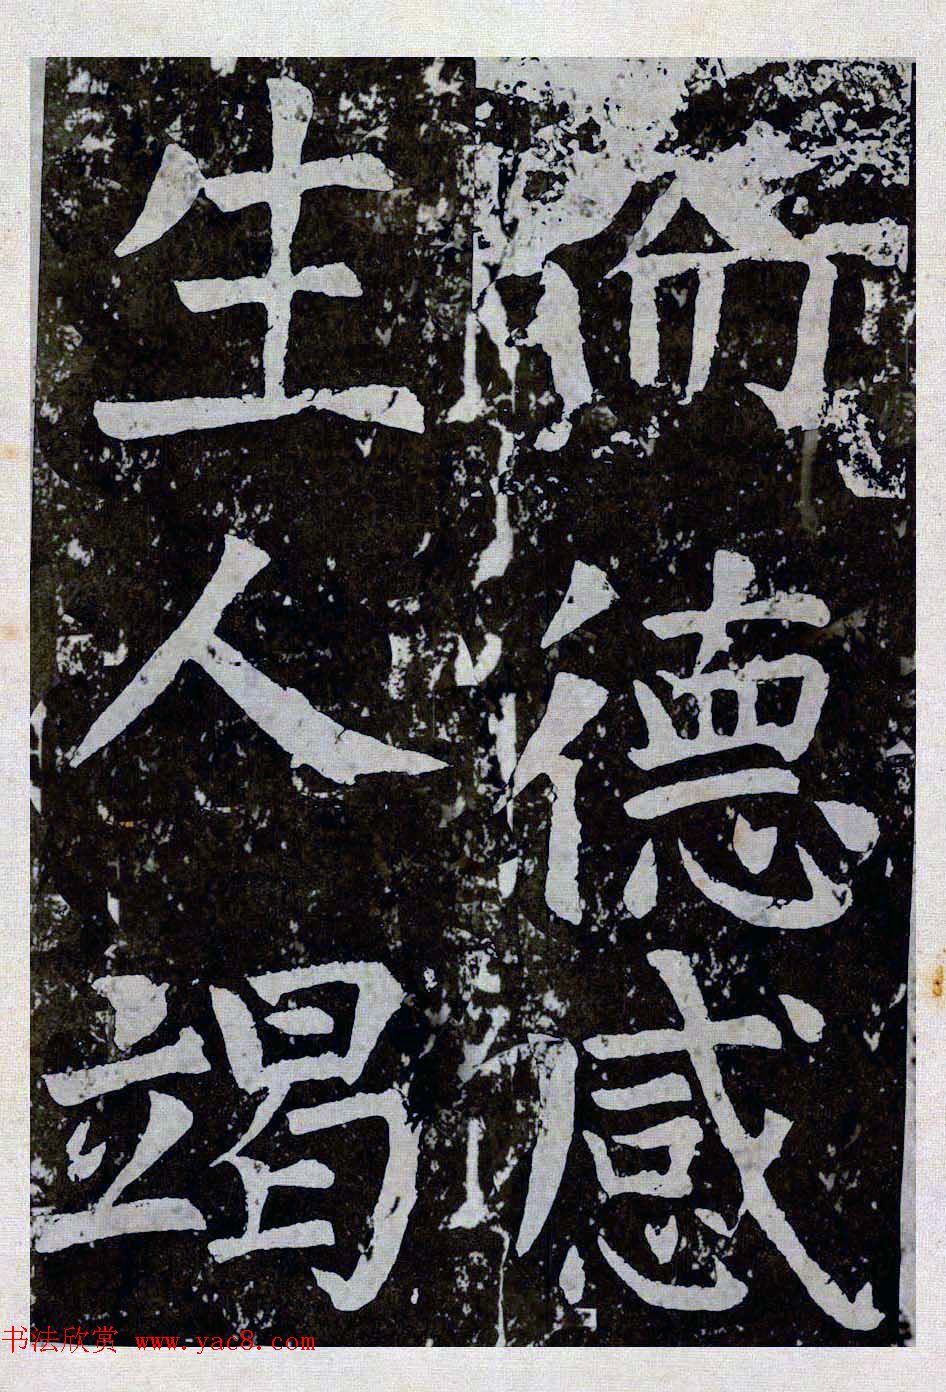 而德感
生人竭
书法欣赏 www.yac8.com